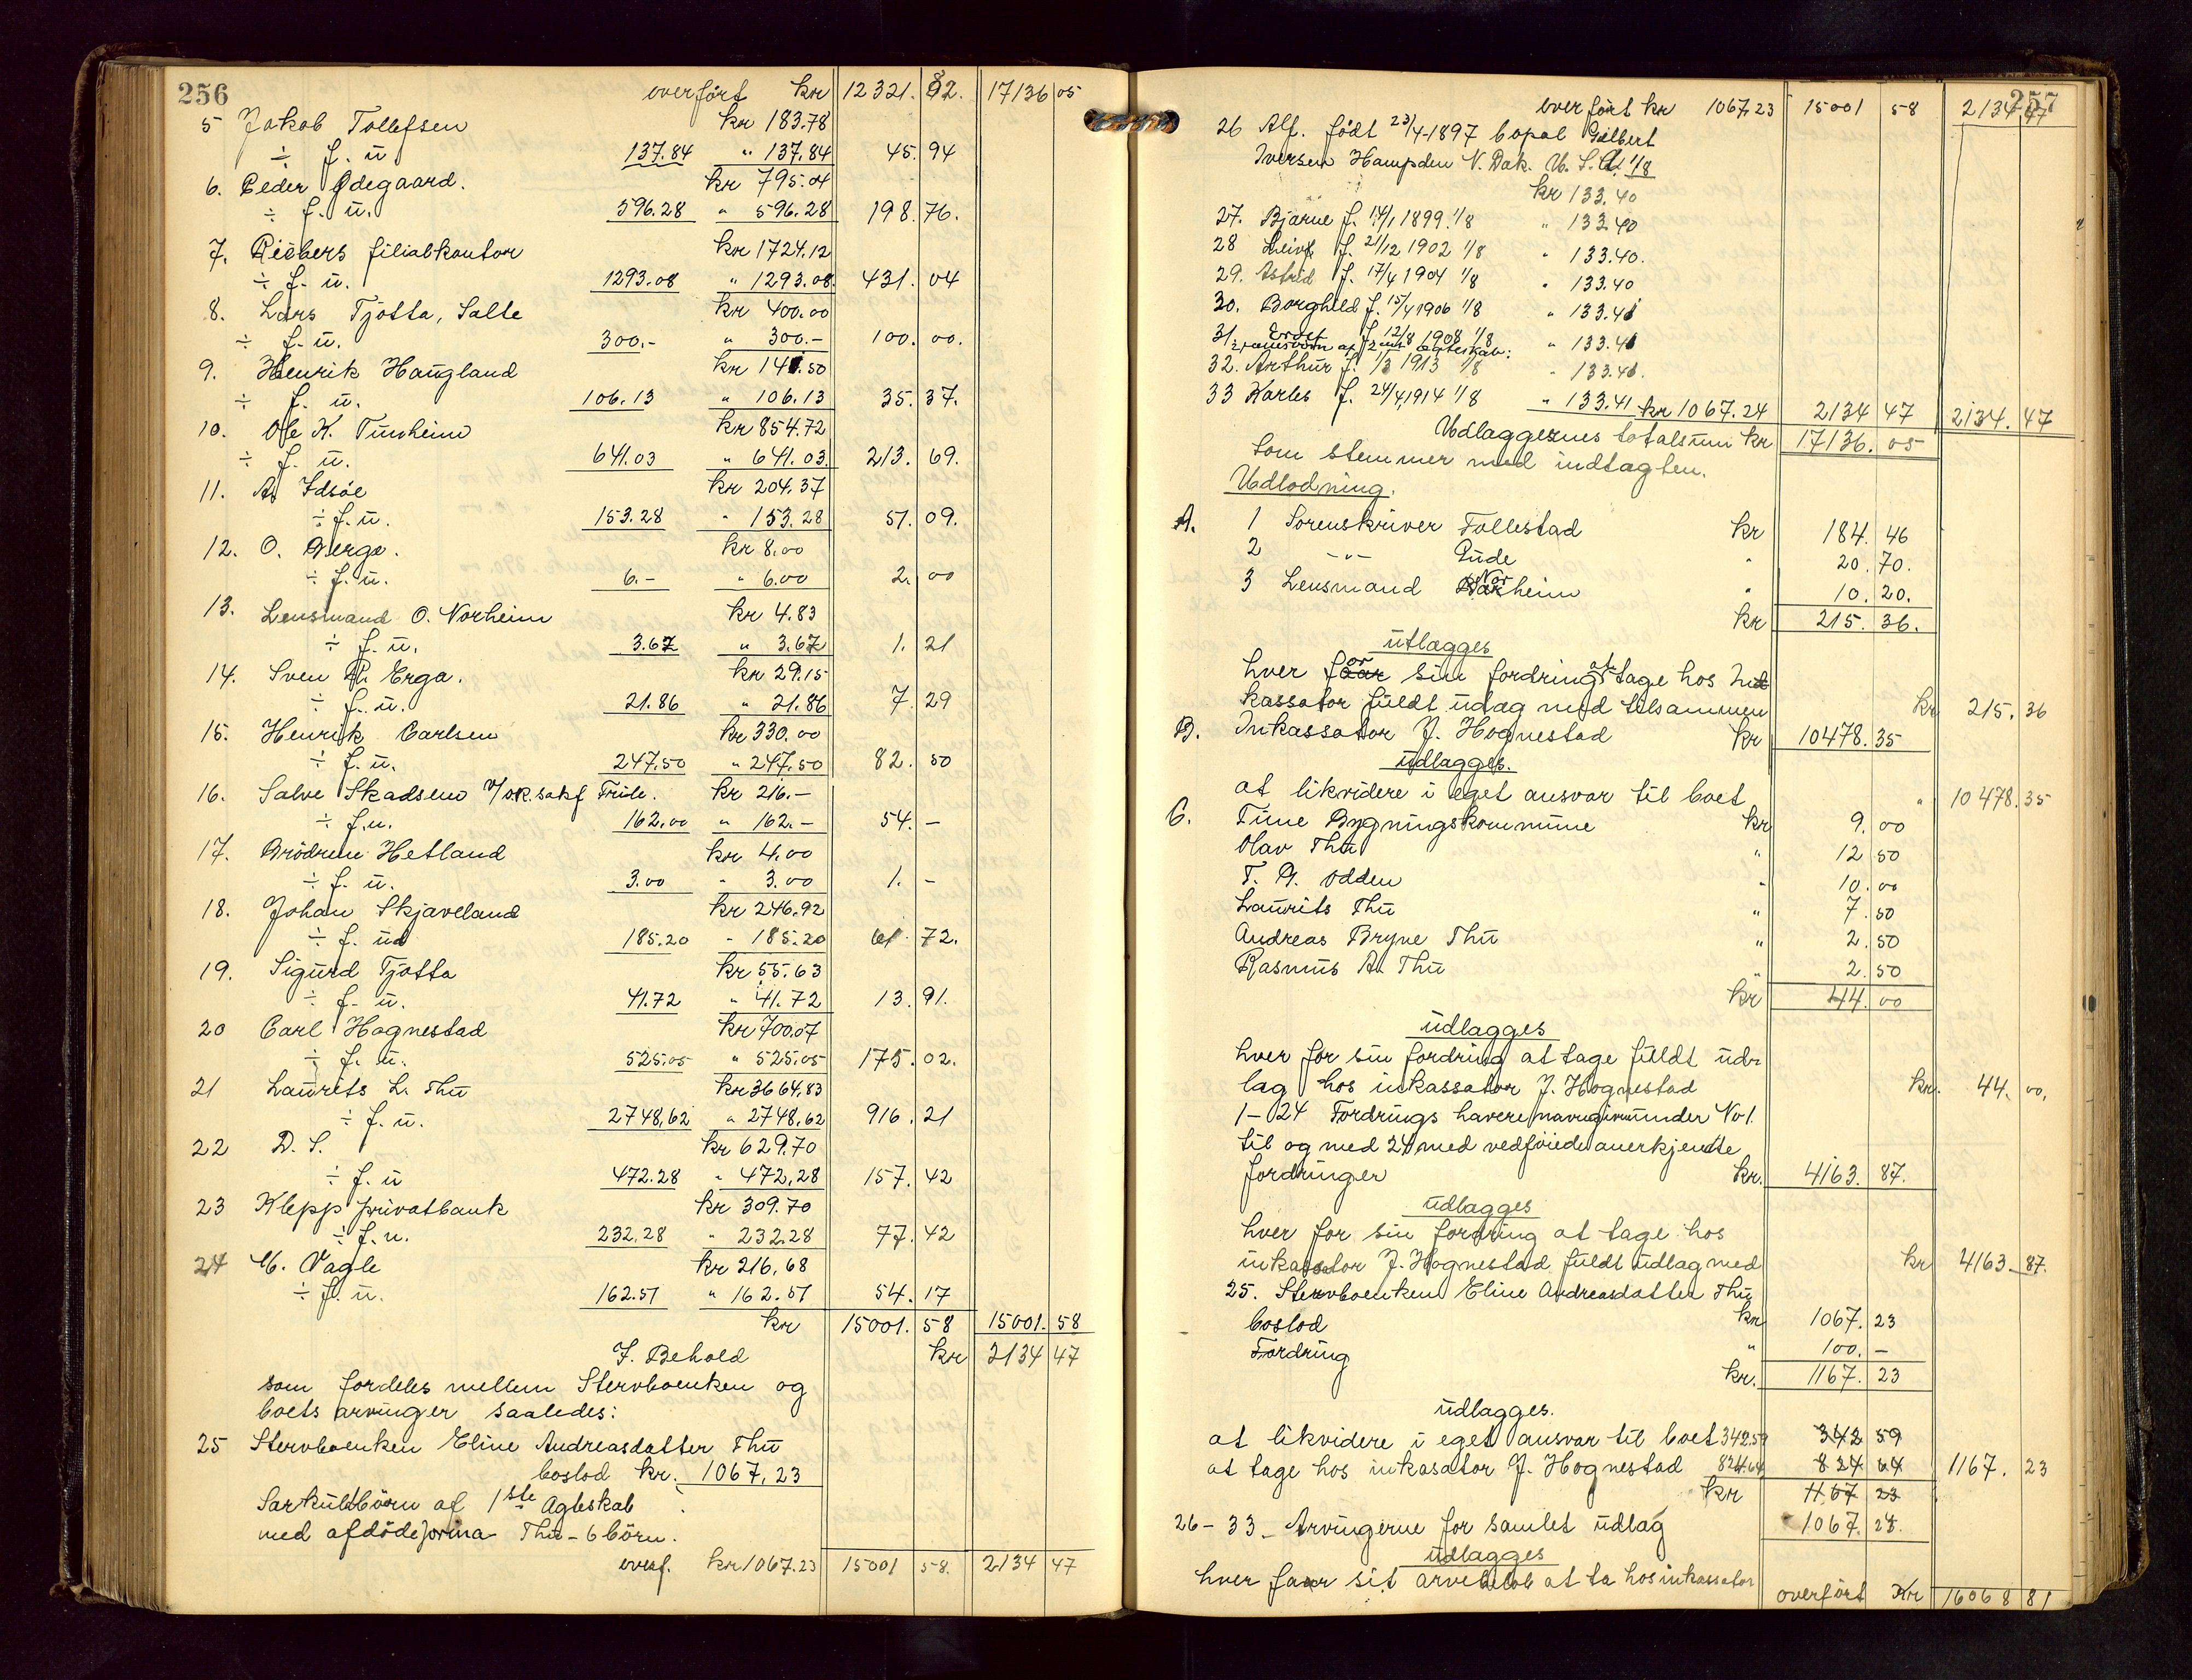 256
overfört kr 12321. 82. 17136 05
5 Jakob Tollefsen kr 183.78
÷ f. u. 137.84 " 137.84 45. 94
6. Peder Ödegaard. kr 795.04
÷ f. u. 596.28 " 596.28 198. 76.
7. Riebers filialkontor kr 1724.12
÷ f. u. 1293.08 " 1293.08. 431. 04
8. Lars Tjötta, Salte kr 400.00
÷ f. u. 300.- " 300.- 100. 00.
9. Henrik Haugland kr 141.50
÷ f. u. 106.13 " 106.13 35. 37.
10. Ole K. Tunheim kr 854.72
÷ f. u. 641.03 " 641.03. 213. 69.
11. A. Idsöe kr 204.37
÷ f. u. 153.28 " 153.28 51. 09.
12. O. Berge. kr 8.00
÷ f. u. 6.- " 6.00 2. 00
13. Lensmand O. Norheim kr 4.83
÷ f. u. 3.67 " 3.67 1. 21
14. Sven R. Erga. kr 29.15
÷ f. u. 21.86 " 21.86 7. 29
15. Henrik Carlsen kr 330.00
÷ f. u. 247.50 " 247.50 82. 50
16. Salve Skadsem v/ o.r.sakf Trile. kr 216.-
÷ f.u. 162.00 " 162.- 54. -
17. Brödrene Hetland kr 4.00
÷ f. u. 3.00 " 3.00 1. -
18. Johan Skjæveland kr 246.92
÷ f. u. 185.20 " 185.20 61. 72.
19. Sigurd Tjötta kr 55.63
÷ f. u. 41.72 " 41.72 13. 91.
20 Carl Hognestad kr 700.07
÷ f. u. 525.05 " 525.05 175. 02.
21 Laurits L. Thu kr 3664.83
÷ f. u. 2748,62 " 2748,62 916. 21
22 D. S. kr 629.70
÷ f. u 472.28 " 472,28 157. 42
23 Klepp privatbank kr 309.70
÷ f. u. 232.28 " 232.28 77. 42
24 M. Vagle kr 216,68
÷ f. u. 162.51 " 162.51 54. 17
kr 15001. 58 15001. 58
I. Behold kr 2134 47
som fordeles mellem Stervboenken og
boets arvinger saaledes:
25 Stervboenken Eline Andreasdatter Thu
boslod kr. 1067,23
Særkuldbörn af 1ste Ægteskab
med afdöde Jorina Thu - 6 börn.
overf. kr 1067.23 15001 58. 2134 47
257
overfört kr 1067.23 15001 58 2134 47
26 Alf. födt 23/4-1897 bopæl Gilbert
Iversen Hampden N. Dak. U. S. A. 1/8
kr 133.40
27. Bjarne f. 14/1 1899. 1/8 " 133.40
28 Leiv f. 21/12 1902 1/8 " 133.40.
29. Astrid f. 17/4 1904 1/8 " 133.40
30. Borghild f. 15/4 1906 1/8 " 133.41
31. Ernst f. 12/8 1908 1/8 " 133.41
af 2det ægteskab:
32. Arthur f. 1/3 1913 1/8 " 133.41.
33 Karles f. 24/4 1914 1/8 " 133.41 kr 1067.24 2134 47 2134. 47
Udlæggernes totalsum kr 17136. 05
Som stemmer med indtægten.
Udlodning.
A. 1 Sorenskriver Tollestad kr 184. 46
2 -"- Gude " 20. 70.
3 Lensmand Norheim " 10. 20.
kr 215. 36.
utlægges
hver for sin fordring at tage hos In
kassator fuldt udlæg med tilsammen kr 215. 36
B. Inkassator J. Hognestad kr 10478. 35
udlægges.
at likvidere i eget ansvar til boet " 10478. 35
C. Time Bygningskommune kr 9. 00
Olav Thu " 12 50
T. G. Odden " 10. 00
Laurits Thu " 7. 50
Andreas Bryne Thu " 2. 50
Rasmus A. Thu " 2. 50
kr 44. 00
udlægges
hver for sin fordring at tage fuldt ud-
læg hos inkassator J. Hognestad kr. 44. 00.
1- 24 Fordrings havere navngivne under No 1.
til og med 24 med vedföiede anerkjendte
fordringer kr. 4163. 87.
udlægges
hver for sin fordring at tage hos
inkassator J. Hognestad fuldt udlæg med kr 4163. 87.
25. Stervboenken Eline Andreasdatter Thu
boslod kr 1067. 23
Fordring " 100. -
kr. 1167. 23
udlægges.
at likvidere i eget ansvar til boet 342.59 342 59
at tage hos inkasator J. Hognestad 824.64 824 64 1167. 23
kr 1167 23
26 - 33 - Arvingerne for samlet udlæg 1067. 24.
udlægges
hver for sit arvebelöb at ta hos inkassator
overfört kr 16068 81